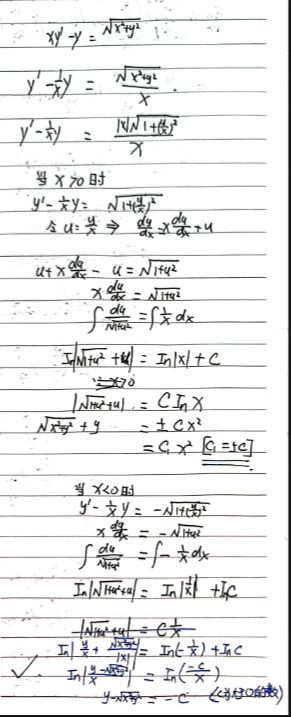 xy' - y = √x²+y²
y' - 1/x y = √x²+y² / x .
y' - 1/x y = |x|√1+(y/x)² / x
当 x>0 时
y' - 1/x y = √1+(y/x)²
令 u = y/x ⇒ dy/dx = x du/dx + u
u + x du/dx - u = √1+u²
x du/dx = √1+u²
∫ du/√1+u² = ∫ 1/x dx
In|√1+u² + u| = In|x| + C
∵ x>0
|√1+u² + u| = C In x
√x²+y² + y = ± C x²
= C₁ x² [C₁ = ±C]
当 x<0 时
y' - 1/x y = -√1+(y/x)²
x du/dx = -√1+u²
∫ du/√1+u² = ∫ - 1/x dx
In|√1+u² + u| = In|1/x| + InC
|√1+u² + u| = C 1/x
In|y/x + √x²+y²/|x|| = In(-1/x) + In C
In|y-√x²+y²/x| = In(-C/x)
y-√x²+y² = -C